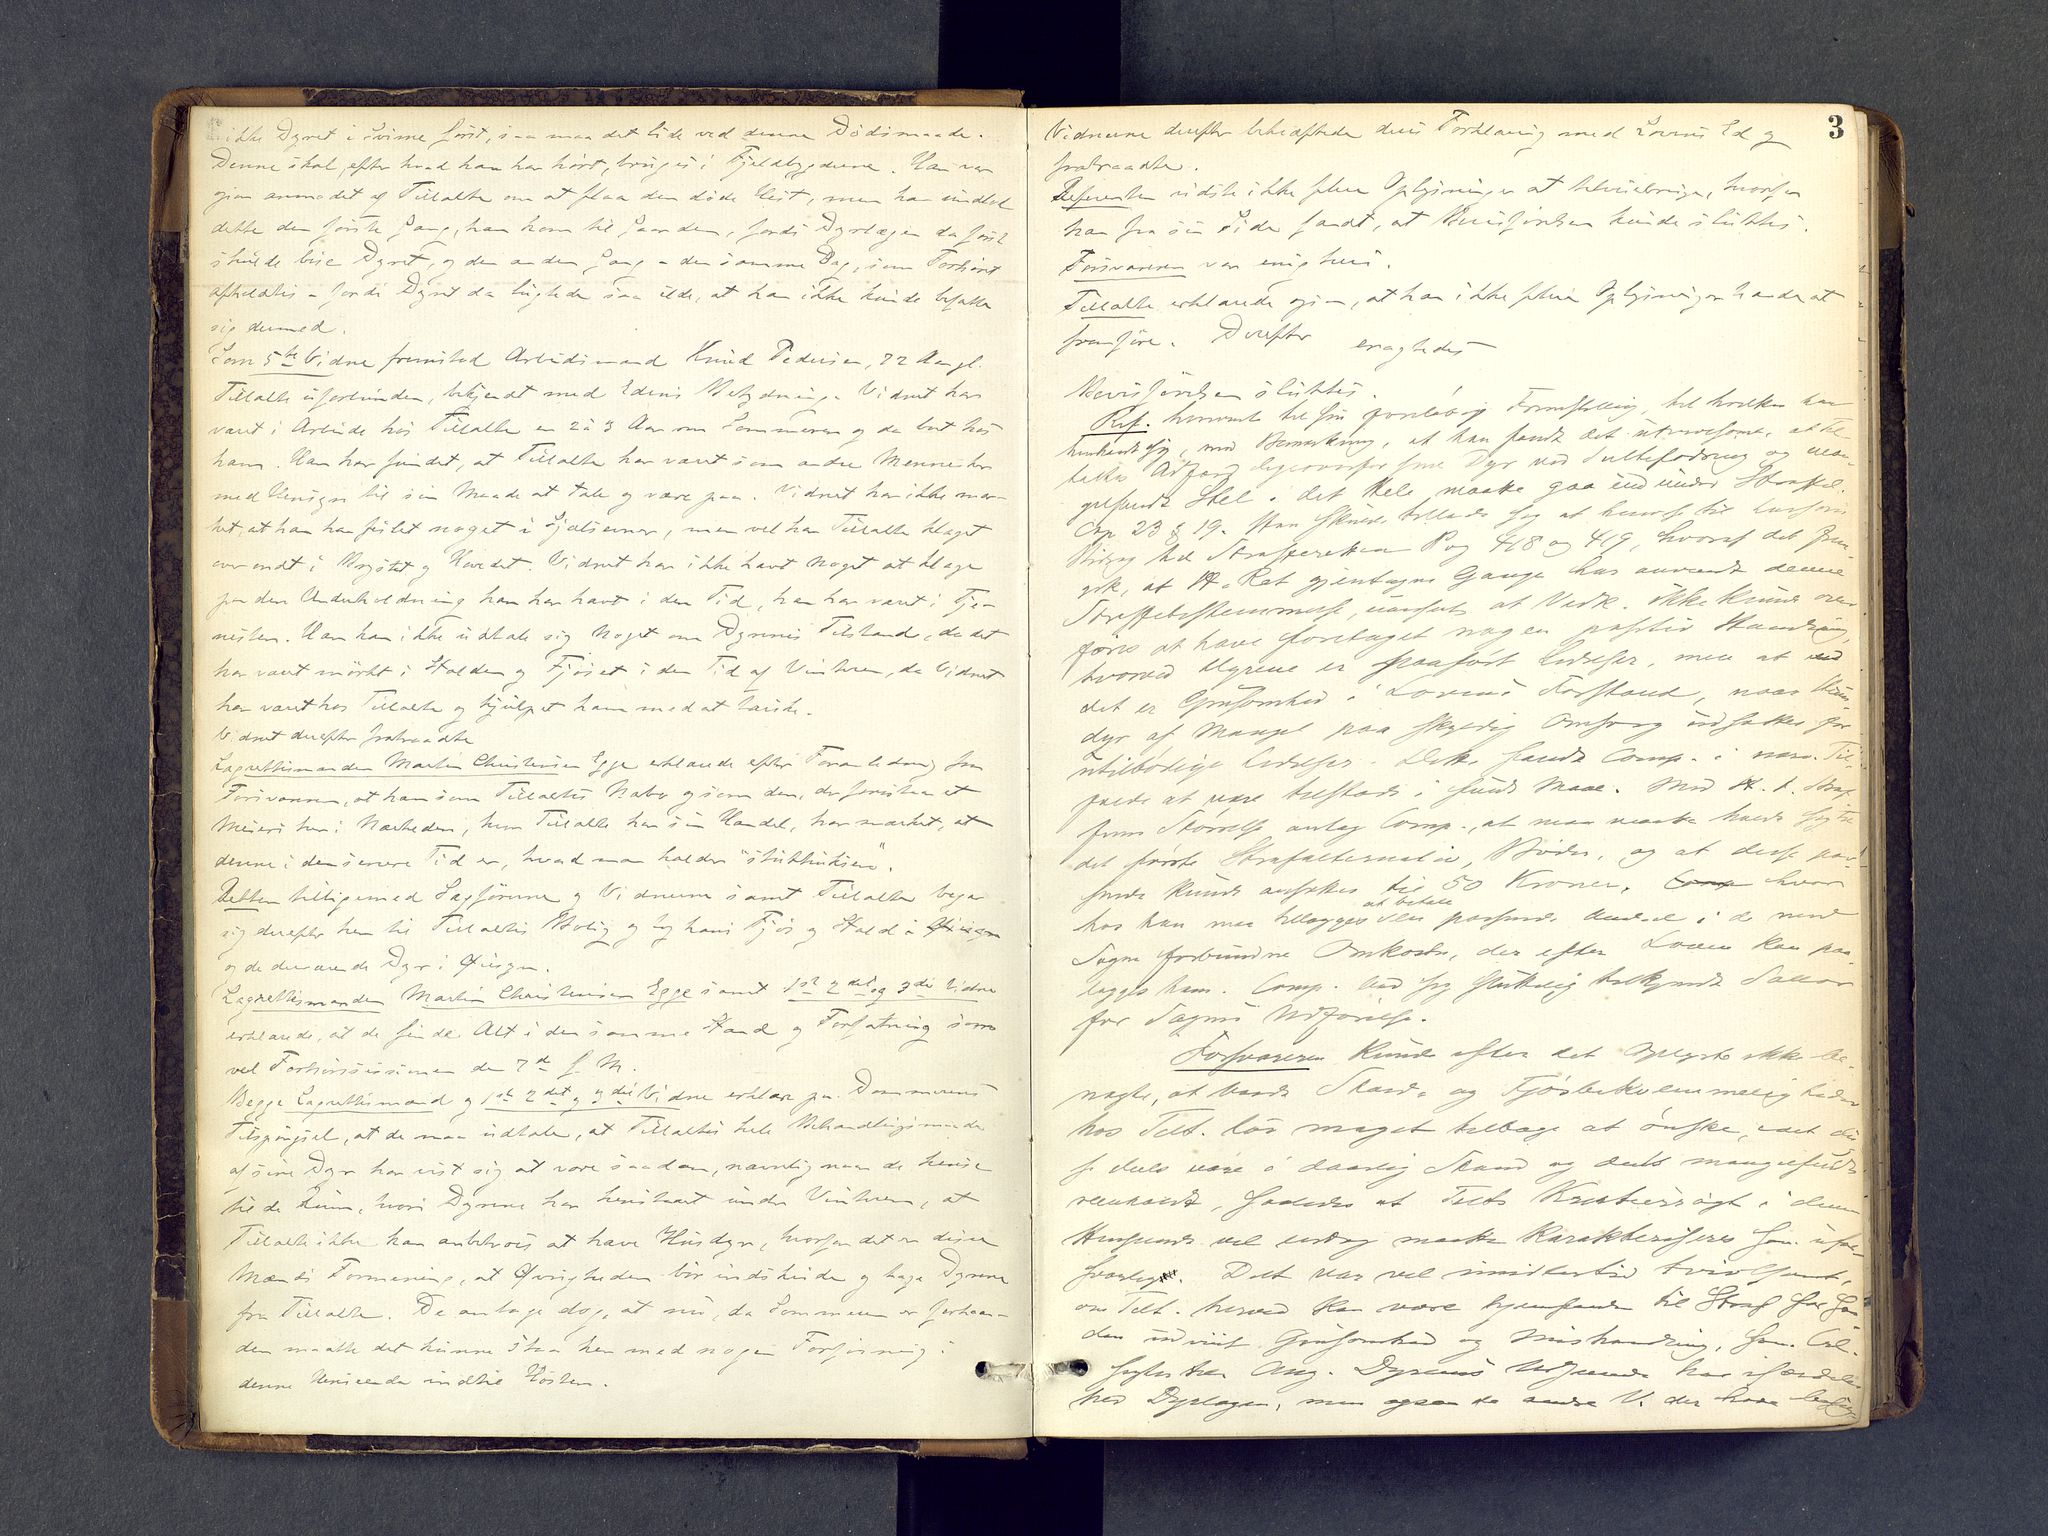 ikke Dyret i Svime först, saa maa det lide ved denne Dödsmaade.
Denne skal, efter hvad han har hört, bruges i Fjeldbygderne. Han var
igjen anmodet af Tiltalte om at flaa den döde Hest, men han undlod
dette den förste Gang, han kom til Gaarden, fordi Dyrlægen da först
skulde bese Dyret, og den anden Gang - den samme Dag, som Forhöret
afholdtes - fordi Dyret da lugtede saa ilde, at han ikke kunde befatte
sig dermed.
Som 5te Vidne fremstod Arbeidsmand Knud Pedersen, 22 Aar gl.
Tiltalte uforbunden, bekjendt med Edens Betydning. Vidnet har
været i Arbeide hos Tiltalte en 2 à 3 Aar om Sommeren og da boet hos
ham. Han har fundet, at Tiltalte har været som andre Mennesker
med Hensyn til sin Maade at tale og være paa. Vidnet har ikke mær-
ket, at han har feilet noget i Sjælsevner, men vel har Tiltalte klaget
over ondt i Brystet og Hovedet. Vidnet har ikke havt noget at klage
paa den Underholdning han har havt i den Tid, han har været i Tje-
nesten. Han kan ikke udtale sig noget om Dyrenes Tilstand, da det
har været mörkt i Stalden og Fjöset i den Tid af Vinteren, da Vidnet
har været hos Tiltalte og hjulpet ham med at tærske.
Vidnet derefter fratraadte
Lagrettesmanden Martin Christensen Egge erklærede efter Foranledning fra
Forsvareren, at han som Tiltaltes Nabo og som den, der forestaar et
Meieri her i Nærheden, hvor Tiltalte har sin Handel, har mærket, at
denne i den senere Tid er, hvad man kalder "
Retten tilligemed Sagförerne og Vidnerne samt Tiltalte begav
sig derefter hen til Tiltaltes Bolig og tog hans Fjös og Stald i
og de derværende Dyr i Öiesyn.
Lagrettesmanden Martin Christensen Egge samt 1ste 2det og 3die Vidne
erklærede, at de finde Alt i den samme Stand og Forfatning som
ved Forhörssessionen den 7de f. M.
Begge Lagrettesmænd og 1ste 2det og 3die Vidne erklære paa Dommerens
Tilspörgsel, at de maa udtale, at Tiltaltes hele Behandlingsmaade
af sine Dyr har vist sig at være saadan, navnlig naar de hense
til de Rum, hvori Dyrene har henstaaet under Vinteren, at
Tiltalte ikke kan anbetroes at have Husdyr, hvorfor det er disse
Mænds Formening, at Övrigheden bör indskride og tage Dyrene
fra Tiltalte. De antage dog, at nu, da Sommeren er forhaan-
den maatte det kunne staa hen med nogen Forföining i
denne Henseende indtil Hösten.
3
Vidnerne derefter bekræftede deres Forklaring med Lovens Ed og
fratraadte.
Referenten vidste ikke flere Oplysninger at tilveiebringe, hvorfor
han fra sin Side fandt, at Bevisförelsen kunde sluttes.
Forsvareren var enig heri.
Tiltalte erklærede igjen, at han ikke flere Oplysninger havde at
fremföre. Derefter eragtedes
Bevisförelsen sluttes.
Ref. henviste til sin foreløbig Fremstilling, til hvilken han
henholdt sig, med Bemærkning, at han fandt det utvivlsomt, at Til-
taltes Adfærd ligeoverfor sine Dyr ved Sultefodring og man-
gelfuldt Stel i det Hele maatte gaa ind under Straffel.
Cap 23 § 19. Han skulde tillade sig at henvise til
Bidrag til Strafferetten Pag 418 og 419, hvoraf det frem-
gik, at H. Ret gjentagne Gange har anvendt denne
Straffebestemmelse, uanset at Vedk. ikke kunde over-
føres at have foretaget nogen positiv Handling,
hvorved Dyrene er paaført Lidelser, men at
det er Grusomhed i Lovens Forstand, naar Hus-
dyr af Mangel paa skyldig Omsorg udsættes for
utilbørlige Lidelser. Dette fandt Comp. i nærv. Til-
fælde at være tilstede i fuldt Maal. Med H. t. Straf-
fens Størrelse antog Comp., at man maatte holde sig til
det første Strafalternativ, Bøder, og at disse pas-
sende kunde ansættes til 50 Kroner, hvor-
hos han maa tillægges at betale den passende Andel i de med
Sagen forbundne Omkostn., der efter Loven kan paa-
lægges ham. Comp. lod sig sluttelig tilkjende Salær
for Sagens Udførelse.
Forsvareren kunde efter det Oplyste ikke be-
nægte, at baade Stald- og Fjøsbekvemmelighederne
hos Tilt. lod meget tilbage at ønske, idet disse
dels vare i daarlig Stand og dels mangelfuldt
renholdt, saaledes at Tilts Kreaturrøgt i denne
Henseende vel endog maatte karakteriseres som ufor-
svarlig. Det var vel imidlertid tvivlsomt,
om Tilt. herved kan være hjemfalden til Straf for
den udviist Grusomhed og Mishandling,
Ang. Dyrenes Udseende har
hed Dyrlægen, men ogsaa de andre V. der have